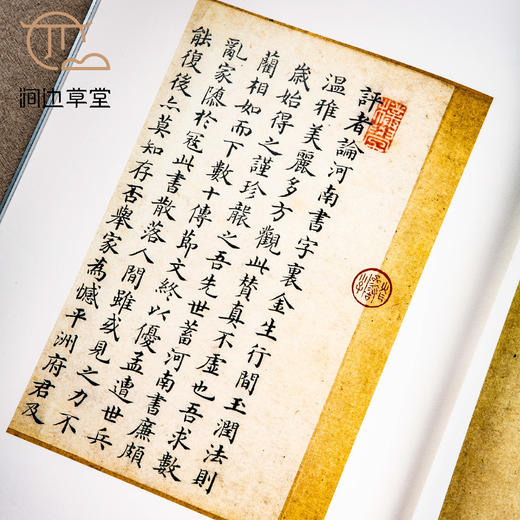 涧边草堂
評者論河南書字裏金生行間玉潤法則
温雅美麗多方觀此賛真不虛也吾求數
歲始得之謹珍襲之吾先世蓄河南書廉頗
藺相如而下數十傳節文終以優孟遭世兵
亂家於寇此書散落人間雖或見之力不
能復後亦莫知存否舉家為憾平洲府君及